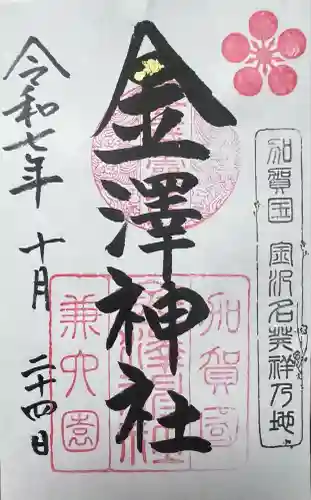 加賀国 金沢名発祥乃地
金澤神社
加賀国
金澤神社
兼六園
令和七年 十月 二十四日